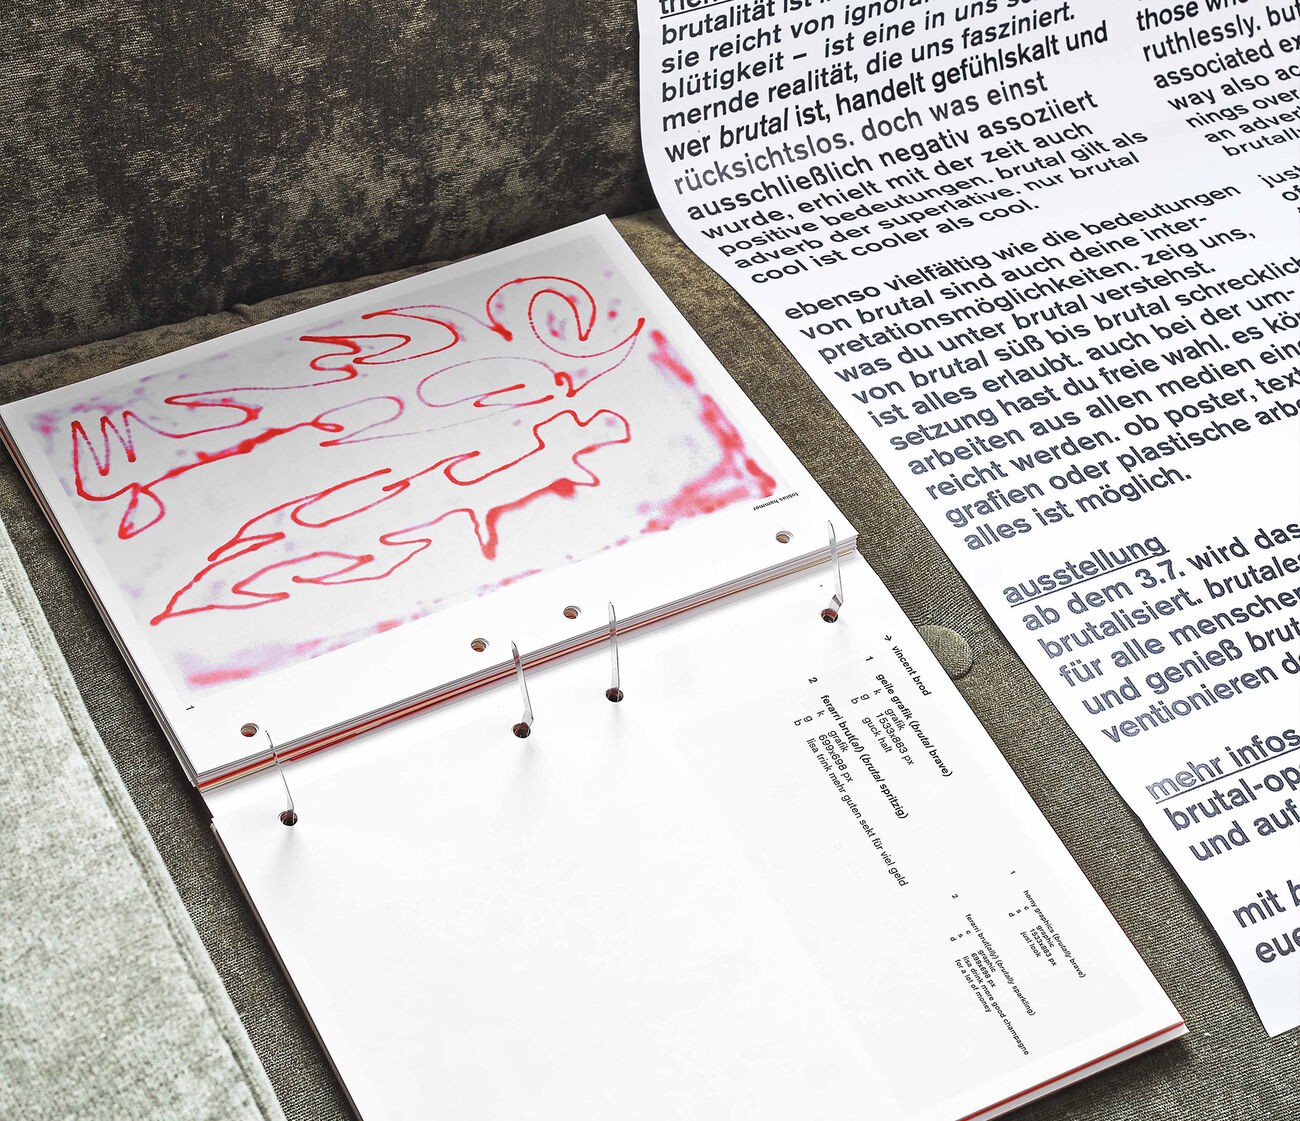 brutalität ist
sie reicht von
blütigkeit – ist eine in uns
mernde realität, die uns fasziniert.
wer brutal ist, handelt gefühlskalt und
rücksichtslos. doch was einst
ausschließlich negativ assoziiert
wurde, erhielt mit der zeit auch
positive bedeutungen. brutal gilt als
adverb der superlative. nur brutal
cool ist cooler als cool.
ebenso vielfältig wie die bedeutungen
von brutal sind auch deine inter-
pretationsmöglichkeiten. zeig uns,
was du unter brutal verstehst.
von brutal süß bis brutal schrecklich
ist alles erlaubt. auch bei der um-
setzung hast du freie wahl. es kön
arbeiten aus allen medien eing
reicht werden. ob poster, text
grafien oder plastische arbe
alles ist möglich.
ausstellung
ab dem 3.7. wird das
brutalisiert. brutales
für alle menschen
und genieß brut
ventionieren
mehr infos
brutal-ope
und auf
mit
eue
those who
ruthlessly. but
associated ex
way also ac
nings over
an adverb
brutally
just
of
tobias hammer
1
→ vincent brod
1 geile grafik (brutal brave)
k grafik
g 1533x883 px
b guck halt
2 ferarri brut(al) (brutal spritzig)
k grafik
g 699x698 px
b lisa trink mehr guten sekt für viel geld
1 horny graphics (brutally brave)
c graphic
s 1533x883 px
d just look
2 ferarri brut(ally) (brutally sparkling)
c graphic
s 699x698 px
d lisa drink more good champagne
for a lot of money